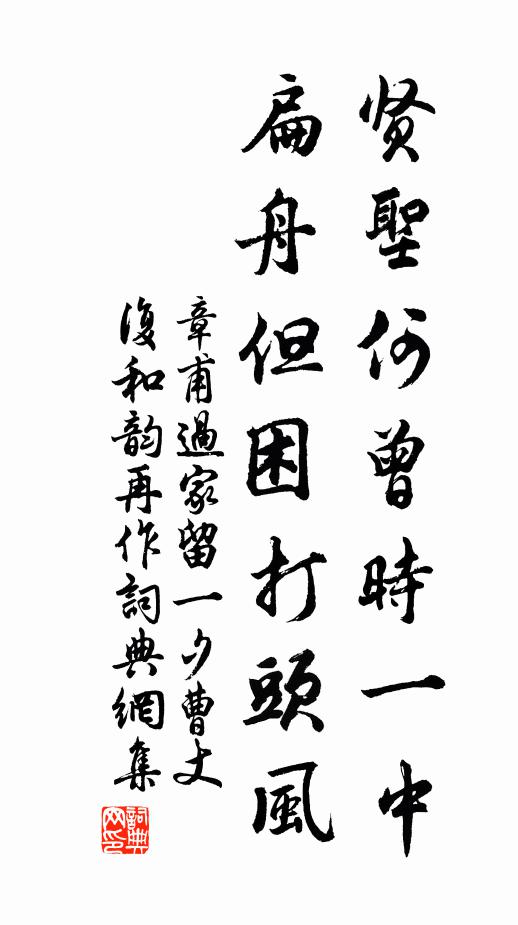 贤聖何曾時一中
扁舟但困打頭風
章甫過家留一夕曹丈
復和韵再作詞典網集
詞典
网印